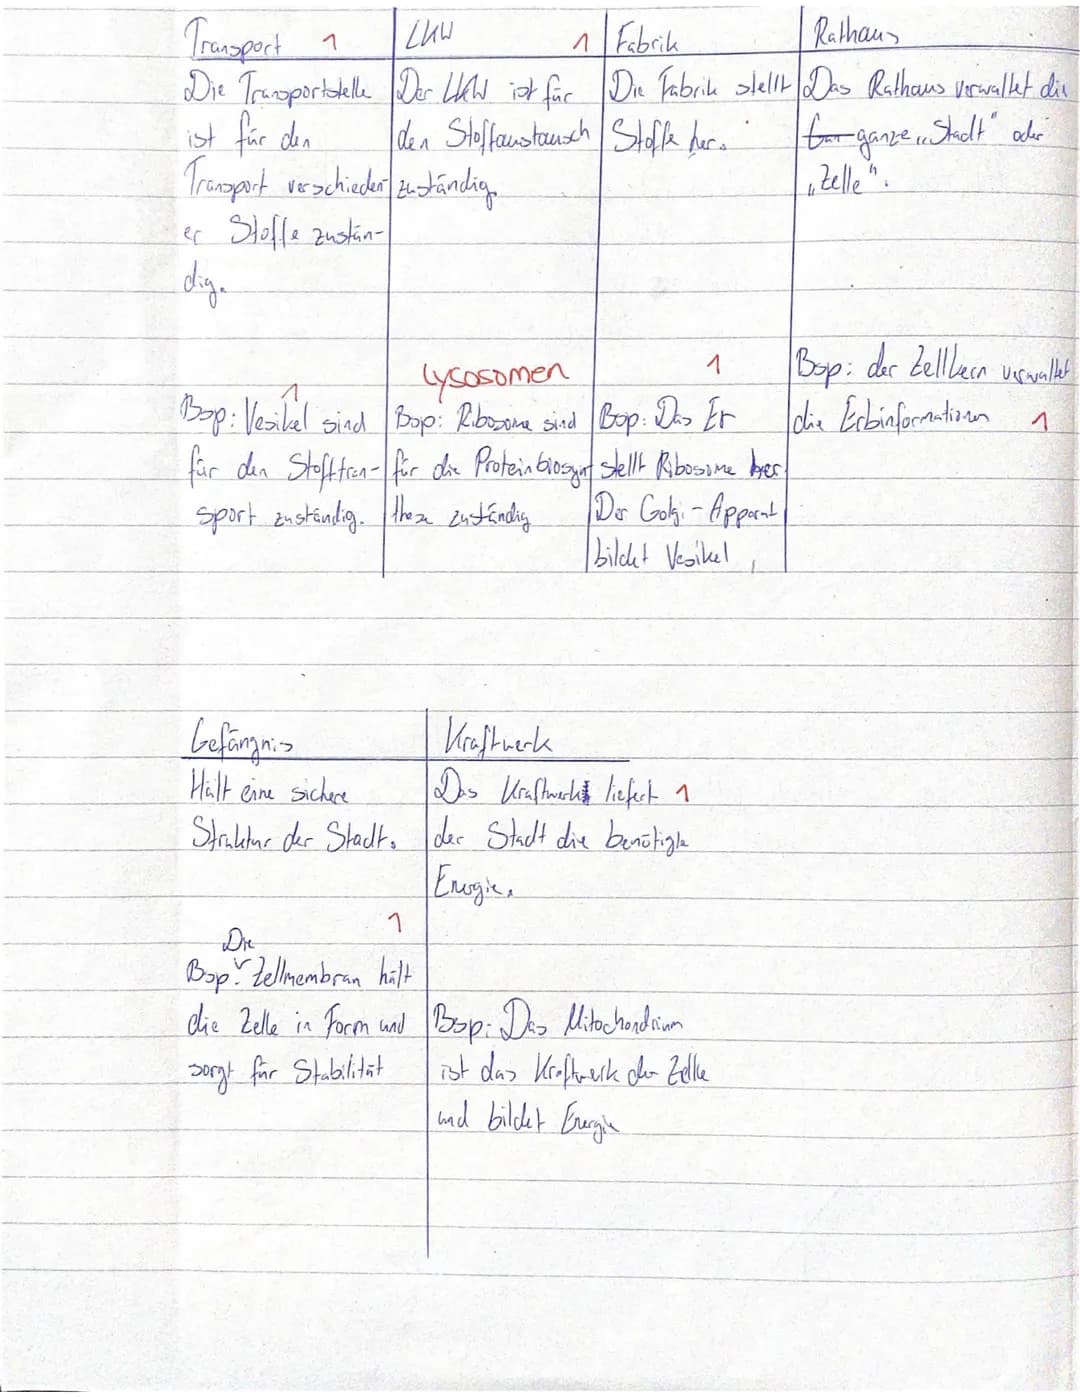 Transport 1
Die Transportstelle
ist für den
Transport verschieden-
er Stoffe zustän-
dig.
1
Bsp: Vesikel sind
für den Stofftran-
sport zuständig.
LKW 1
Der LKW ist für
den Stoffaustausch
zuständig.
Lysosomen
Bsp: Ribosome sind
für die Proteinbiosyn
these zuständig
Fabrik
Die Fabrik stellt
Stoffe her.
1
Bsp: Das Er
stellt Ribosome her.
Der Golgi-Apparat
bildet Vesikel
Rathaus
Das Rathaus verwaltet die
ganze „Stadt" oder
„Zelle".
Bsp: der Zellkern verwaltet
die Erbinformationen 1
Gefängnis
Hält eine sichere
Struktur der Stadt.
1
Die
Bsp: Zellmembran hält
die Zelle in Form und
sorgt für Stabilität
Kraftwerk
Das Kraftwerk liefert 1
der Stadt die benötigte
Energie.
Bsp: Das Mitochondrium
ist das Kraftwerk der Zelle
und bildet Energie